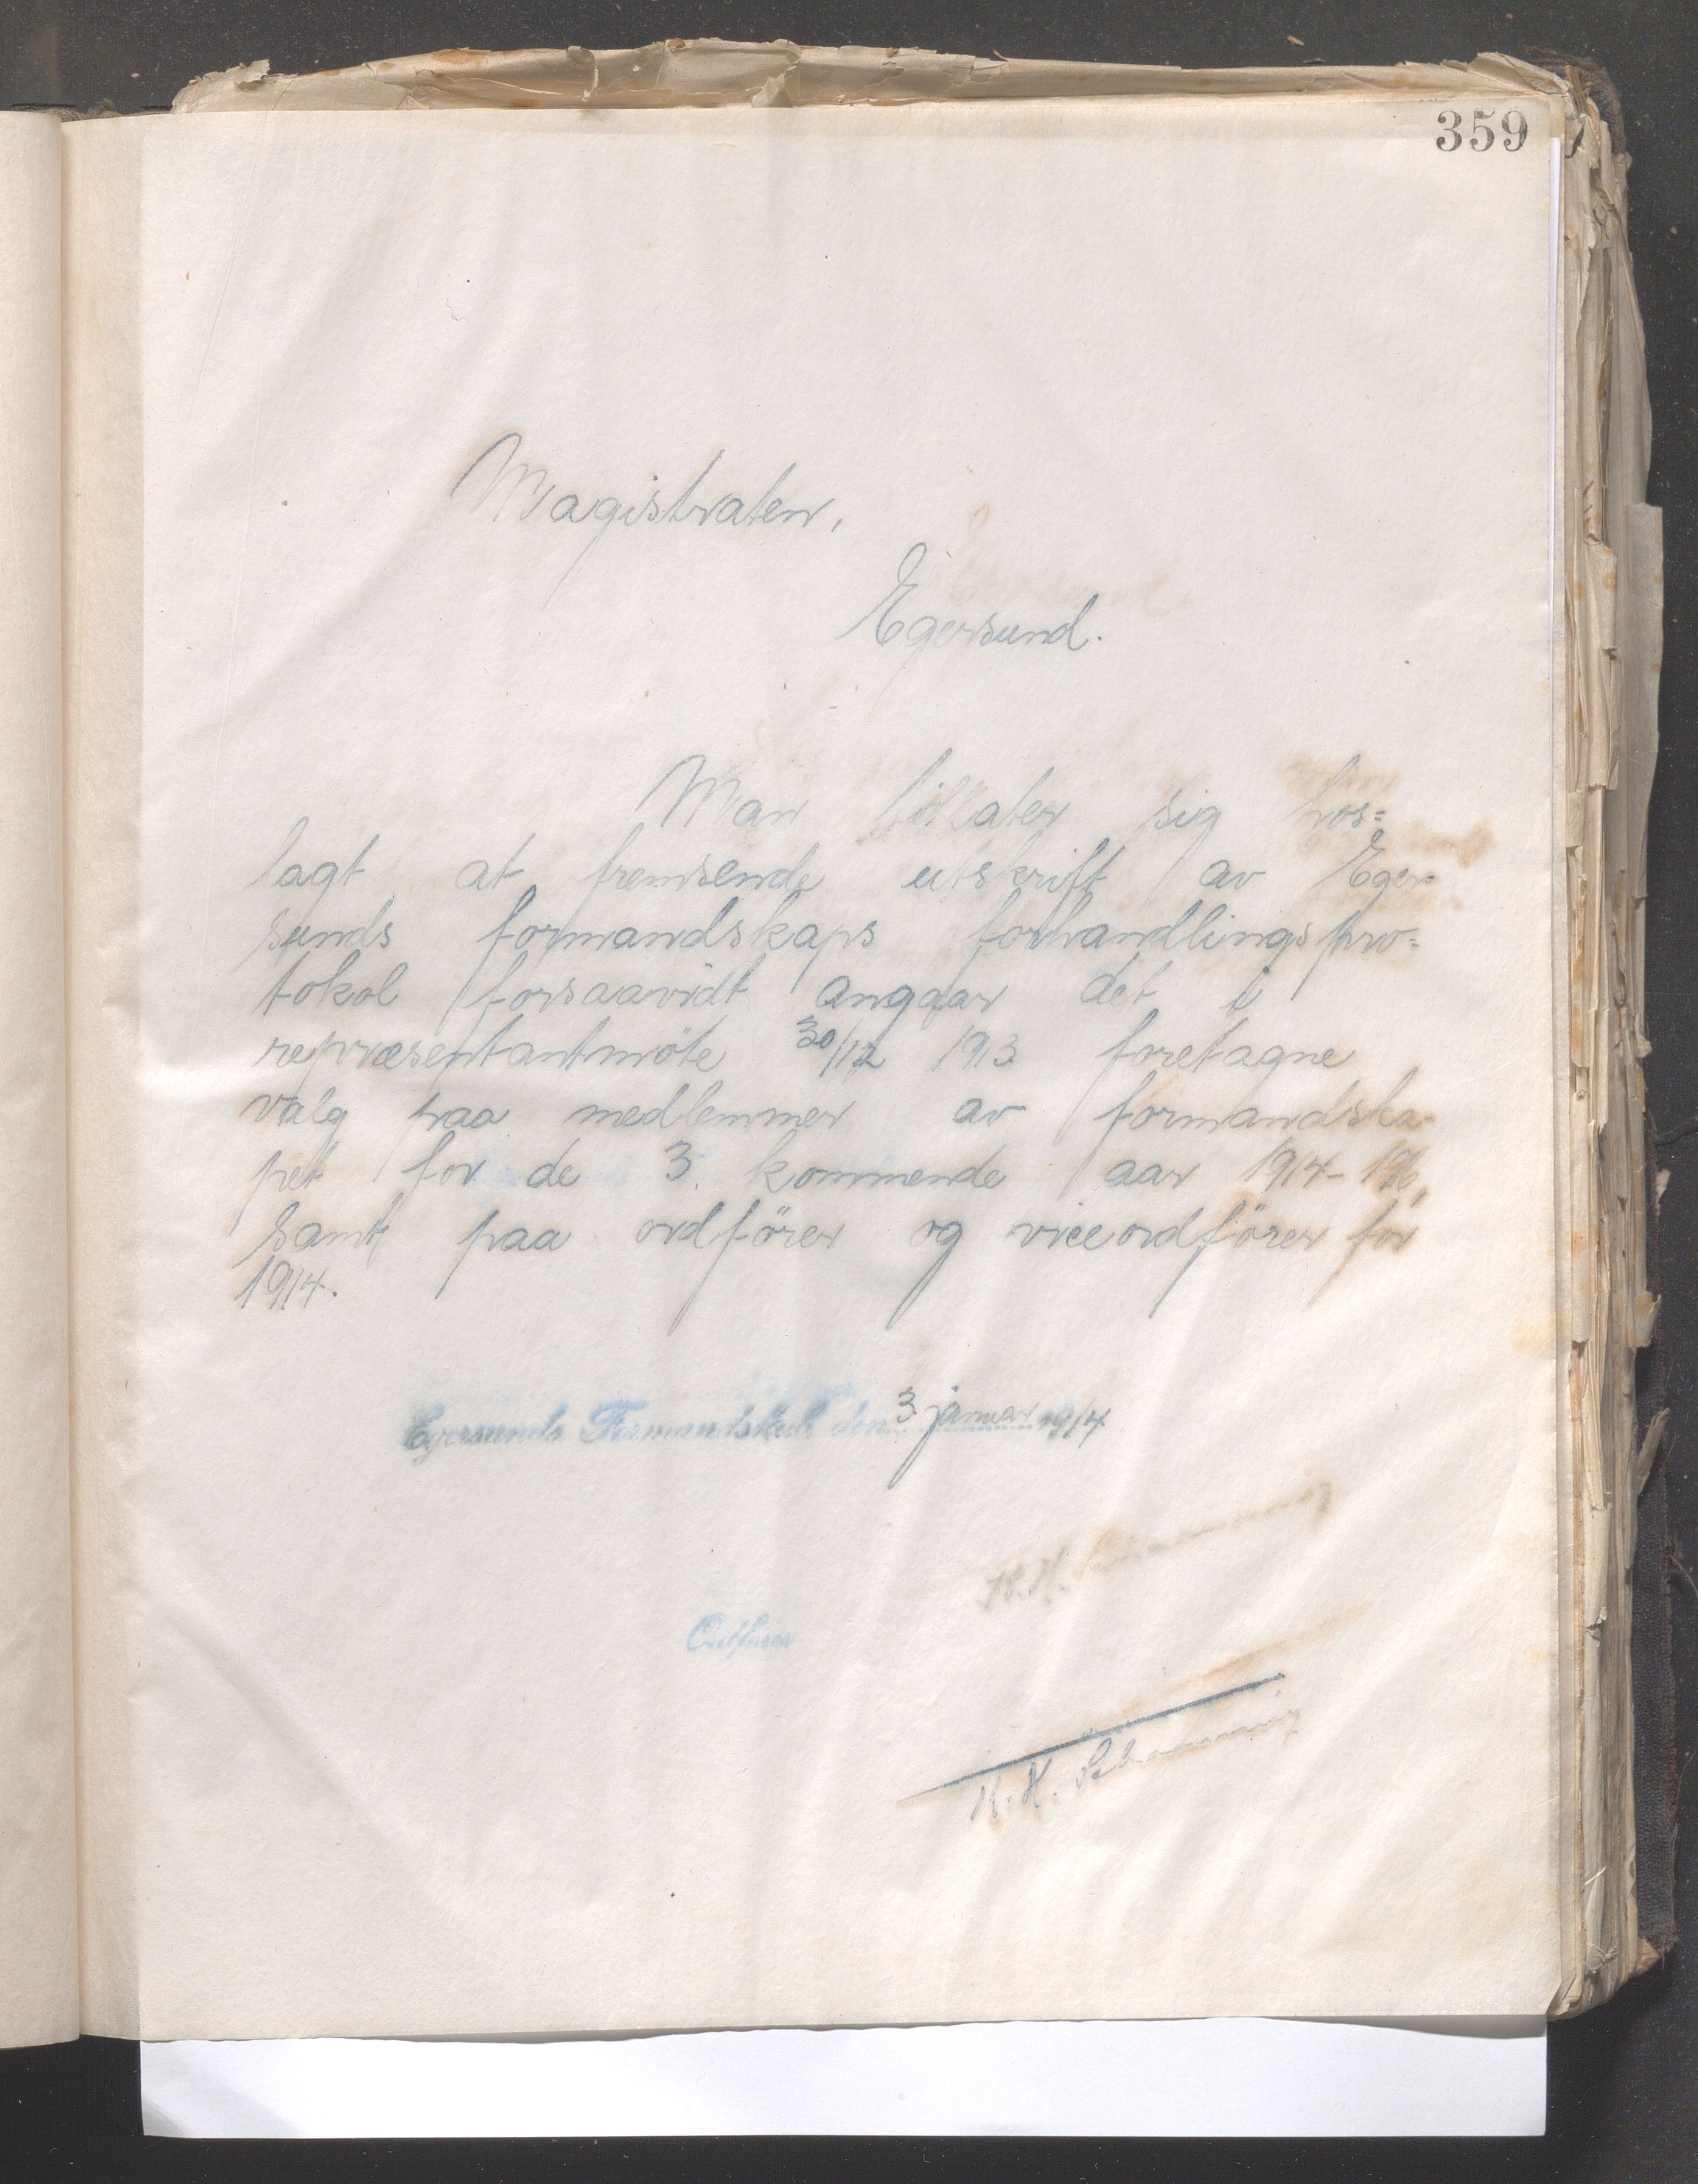 359
Magistraten,
Egersund.
Man tillater sig hos=
lagt at fremsende utskrift av Eger=
sunds formandskaps forhandlingspro=
tokol forsaavidt angaar det i
repræsentantmöte 30/12 1913 foretagne
valg paa medlemmer av formandska-
pet for de 3 kommende aar 1914-1916,
samt paa ordförer og viceordförer for
1914.
Egersunds Formandskab den 3 januar 1914
K. H.
Ordfører
K. H. Schanning